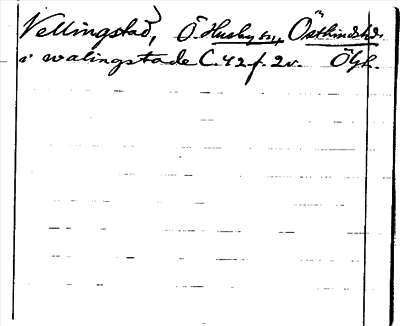 Vellingstad, Ö. Husby sn, Östkinds hd.
i walingstade C. 42 f. 2v. Ögl.